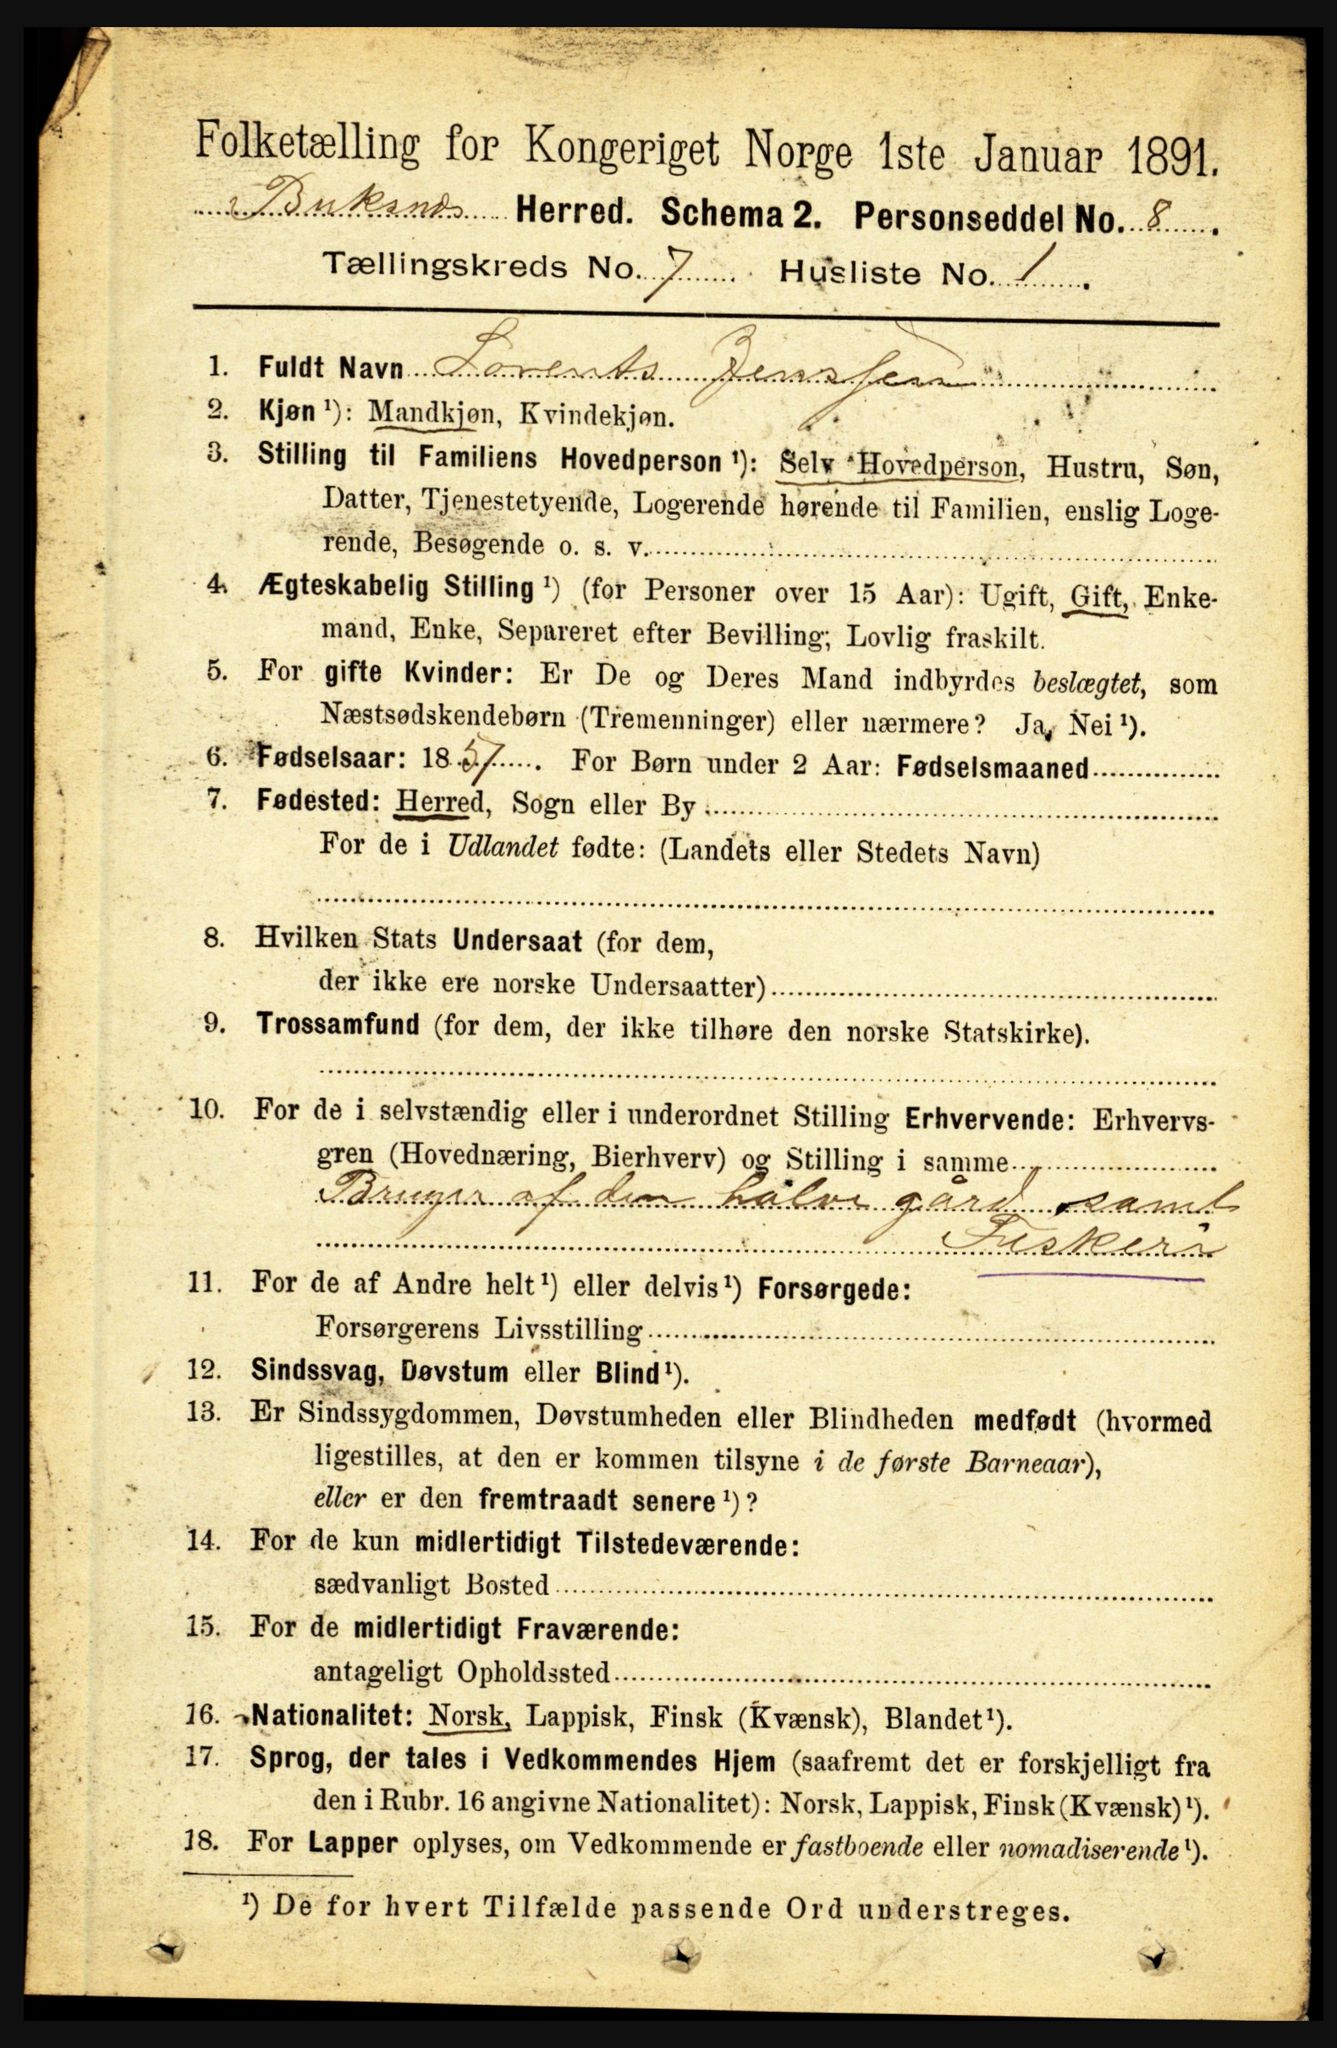 Folketælling for Kongeriget Norge 1ste Januar 1891.
Buksnes Herred. Schema 2. Personseddel No. 8.
Tællingskreds No. 7. Husliste No. 1.
1. Fuldt Navn Lorents Jenssen
2. Kjøn ¹): Mandkjøn, Kvindekjøn.
3. Stilling til Familiens Hovedperson ¹): Selv Hovedperson, Hustru, Søn,
Datter, Tjenestetyende, Logerende hørende til Familien, enslig Loge-
rende, Besøgende o. s. v.
4. Ægteskabelig Stilling ¹) (for Personer over 15 Aar): Ugift, Gift, Enke-
mand, Enke, Separeret efter Bevilling, Lovlig fraskilt.
5. For gifte Kvinder: Er De og Deres Mand indbyrdes beslægtet, som
Næstsødskendebørn (Tremenninger) eller nærmere? Ja, Nei ¹).
6. Fødselsaar: 1857. For Børn under 2 Aar: Fødselsmaaned
7. Fødested: Herred, Sogn eller By
For de i Udlandet fødte: (Landets eller Stedets Navn)
8. Hvilken Stats Undersaat (for dem,
der ikke ere norske Undersaatter)
9. Trossamfund (for dem, der ikke tilhøre den norske Statskirke).
10. For de i selvstændig eller i underordnet Stilling Erhvervende: Erhvervs-
gren (Hovednæring, Bierhverv) og Stilling i samme
Bruger af den halve gård samt
Fiskeri
11. For de af Andre helt ¹) eller delvis ¹) Forsørgede:
Forsørgerens Livsstilling
12. Sindssvag, Døvstum eller Blind ¹).
13. Er Sindssygdommen, Døvstumheden eller Blindheden medfødt (hvormed
ligestilles, at den er kommen tilsyne i de første Barneaar),
eller er den fremtraadt senere ¹)?
14. For de kun midlertidigt Tilstedeværende:
sædvanligt Bosted
15. For de midlertidigt Fraværende:
antageligt Opholdssted
16. Nationalitet: Norsk, Lappisk, Finsk (Kvænsk), Blandet ¹).
17. Sprog, der tales i Vedkommendes Hjem (saafremt det er forskjelligt fra
den i Rubr. 16 angivne Nationalitet): Norsk, Lappisk, Finsk (Kvænsk) ¹).
18. For Lapper oplyses, om Vedkommende er fastboende eller nomadiserende ¹).
¹) De for hvert Tilfælde passende Ord understreges.